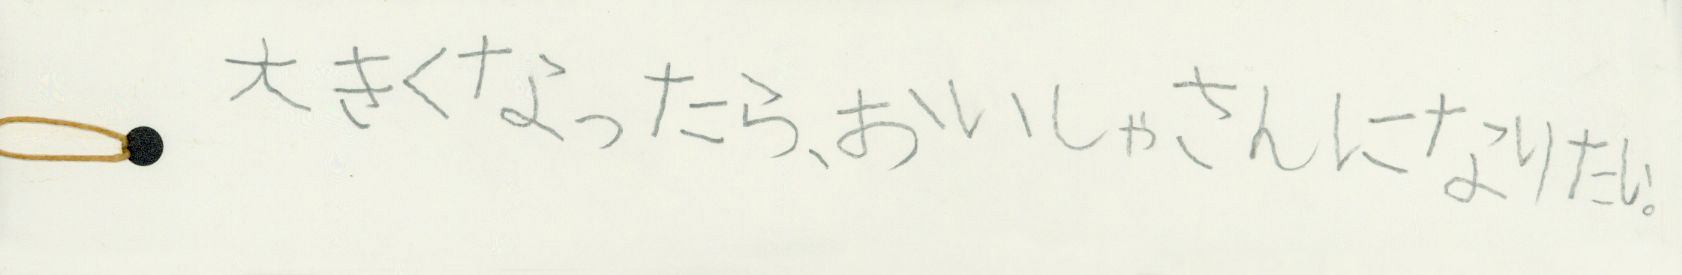 大きくなったら、おいしゃさんになりたい。